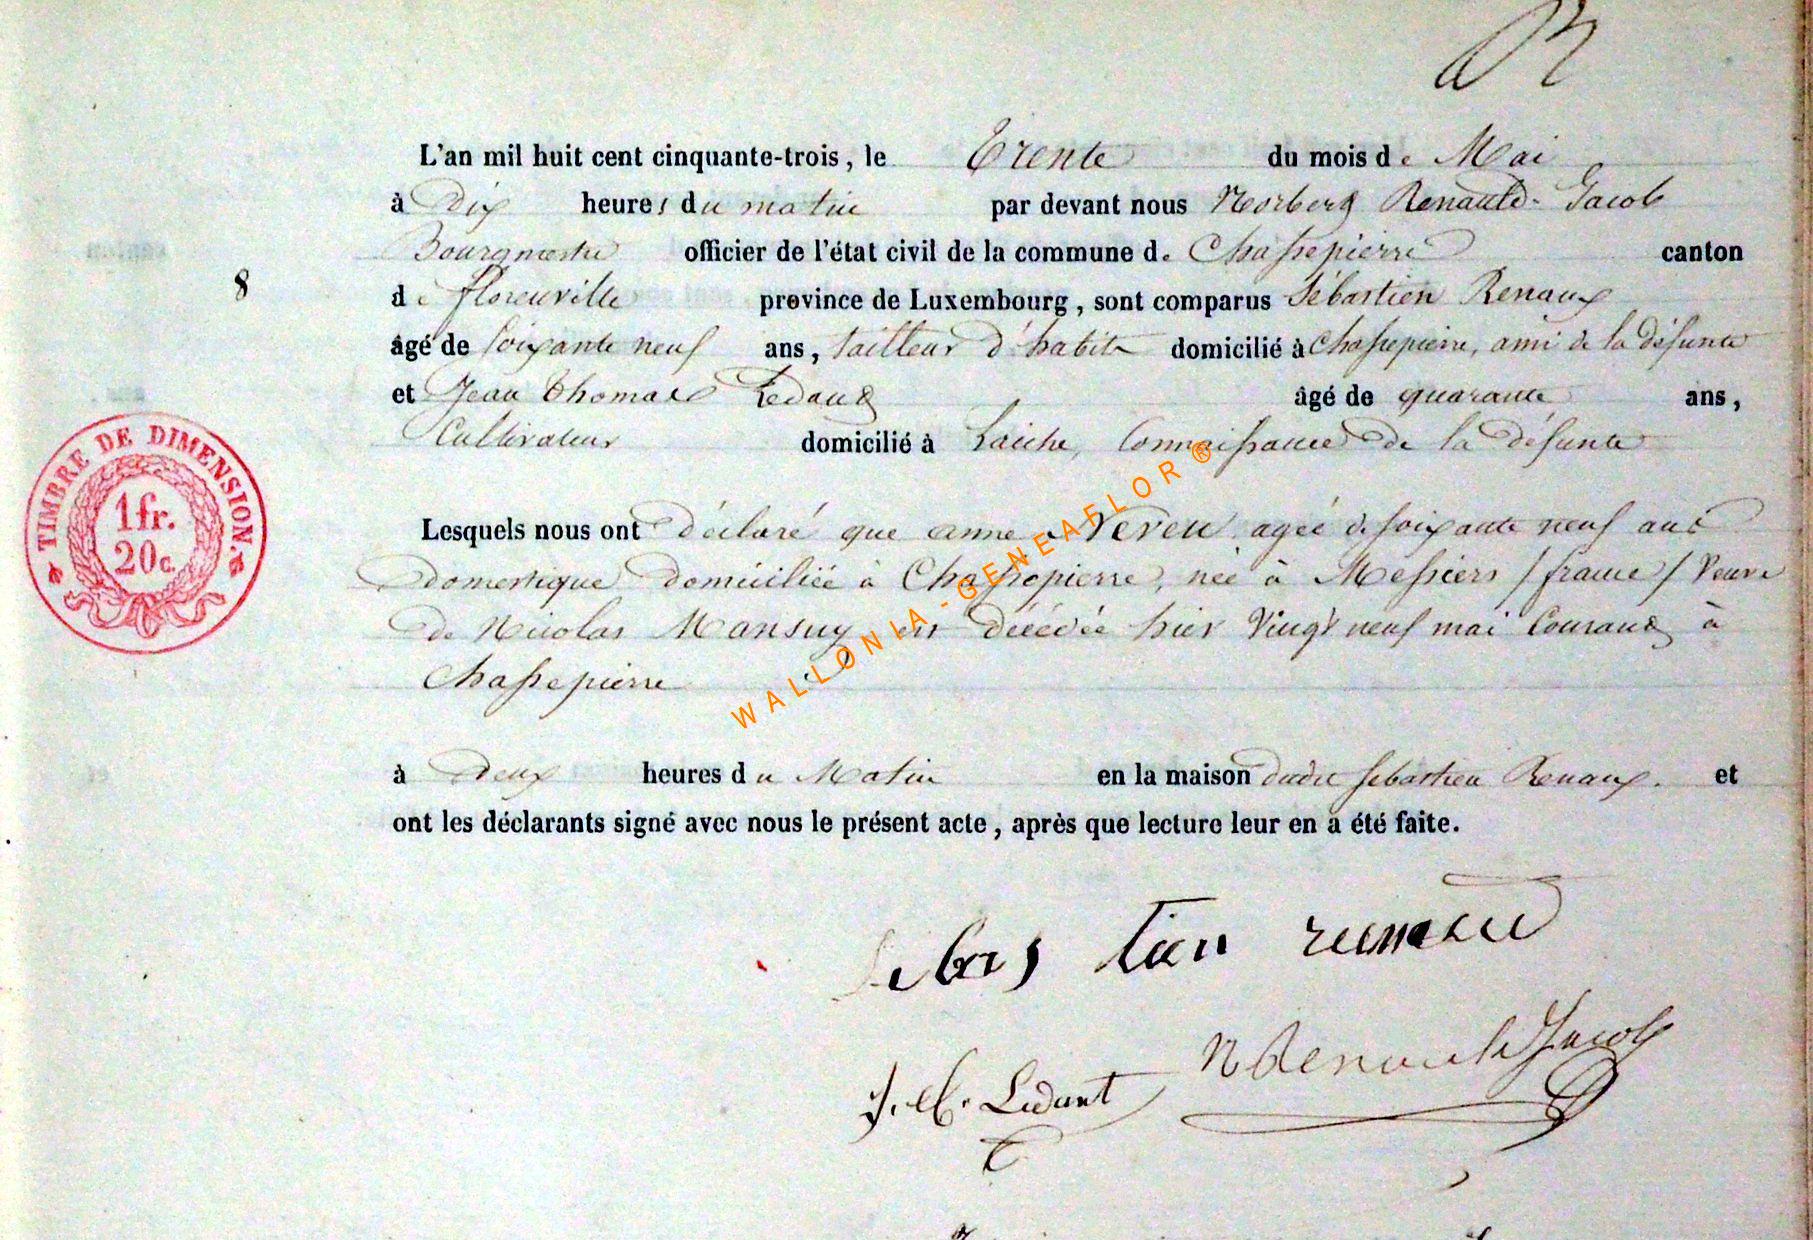 L'an mil huit cent cinquante-trois, le Trente du mois de Mai
à Dix heures du matin par devant nous Norbert Renauld-Jacob
Bourgmestre officier de l'état civil de la commune de Chassepierre canton
8
de florenville province de Luxembourg, sont comparus Sébastien Renaux
âgé de soixante neuf ans, tailleur d'habits domicilié à Chassepierre, ami de la défunte
et Jean Thomas Ledant âgé de quarante ans,
Cultivateur domicilié à Laiche, Connaissance de la défunte
TIMBRE DE DIMENSION.
1 fr.
20 c.
Lesquels nous ont déclaré que anne Neveu agée de soixante neuf ans
domestique domiciliée à Chassepierre, née à Messiers / france / Veuve
de Nicolas Mansuy est décédée hier Vingt neuf mai Courant à
Chassepierre
à deux heures du Matin en la maison dudit sebastien Renaux. et
ont les déclarants signé avec nous le présent acte, après que lecture leur en a été faite.
sebas tien renaux
N Renauld Jacob
J. T. Ledant
WALLONIA-GENEAFLOR ®